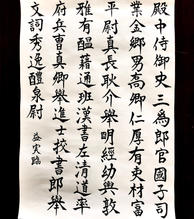 殿中侍御史三為郎官國子司
業金鄉男高卿仁厚有吏材富
平尉真長耿介舉明經幼輿敦
雅有醞藉通班漢書左清道率
府兵曹真卿舉進士校書郎舉
文詞秀逸醴泉尉